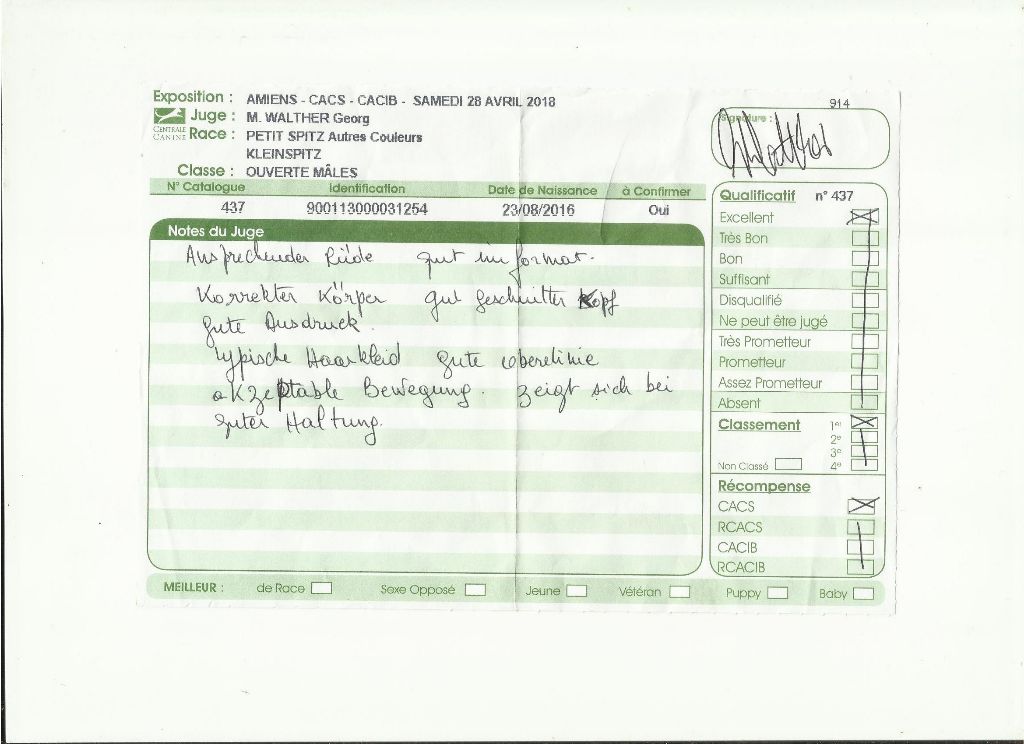 Exposition : AMIENS - CACS - CACIB - SAMEDI 28 AVRIL 2018
914
Juge : M. WALTHER Georg
Signature :
CENTRALE CANINE
Race : PETIT SPITZ Autres Couleurs
KLEINSPITZ
Classe : OUVERTE MÂLES
N° Catalogue Identification Date de Naissance à Confirmer
437 900113000031254 23/08/2016 Oui
Notes du Juge
Ansprechender Rüde gut im format.
Korrekter Körper gut geschnitter Kopf
gute Ausdruck.
typische Haarkleid gute oberelinie
akzeptable Bewegung. zeigt sich bei
guter Haltung.
Qualificatif n° 437
Excellent
Très Bon
Bon
Suffisant
Disqualifié
Ne peut être jugé
Très Prometteur
Prometteur
Assez Prometteur
Absent
Classement 1er
2e
3e
Non Classé 4e
Récompense
CACS
RCACS
CACIB
RCACIB
MEILLEUR : de Race Sexe Opposé Jeune Vétéran Puppy Baby